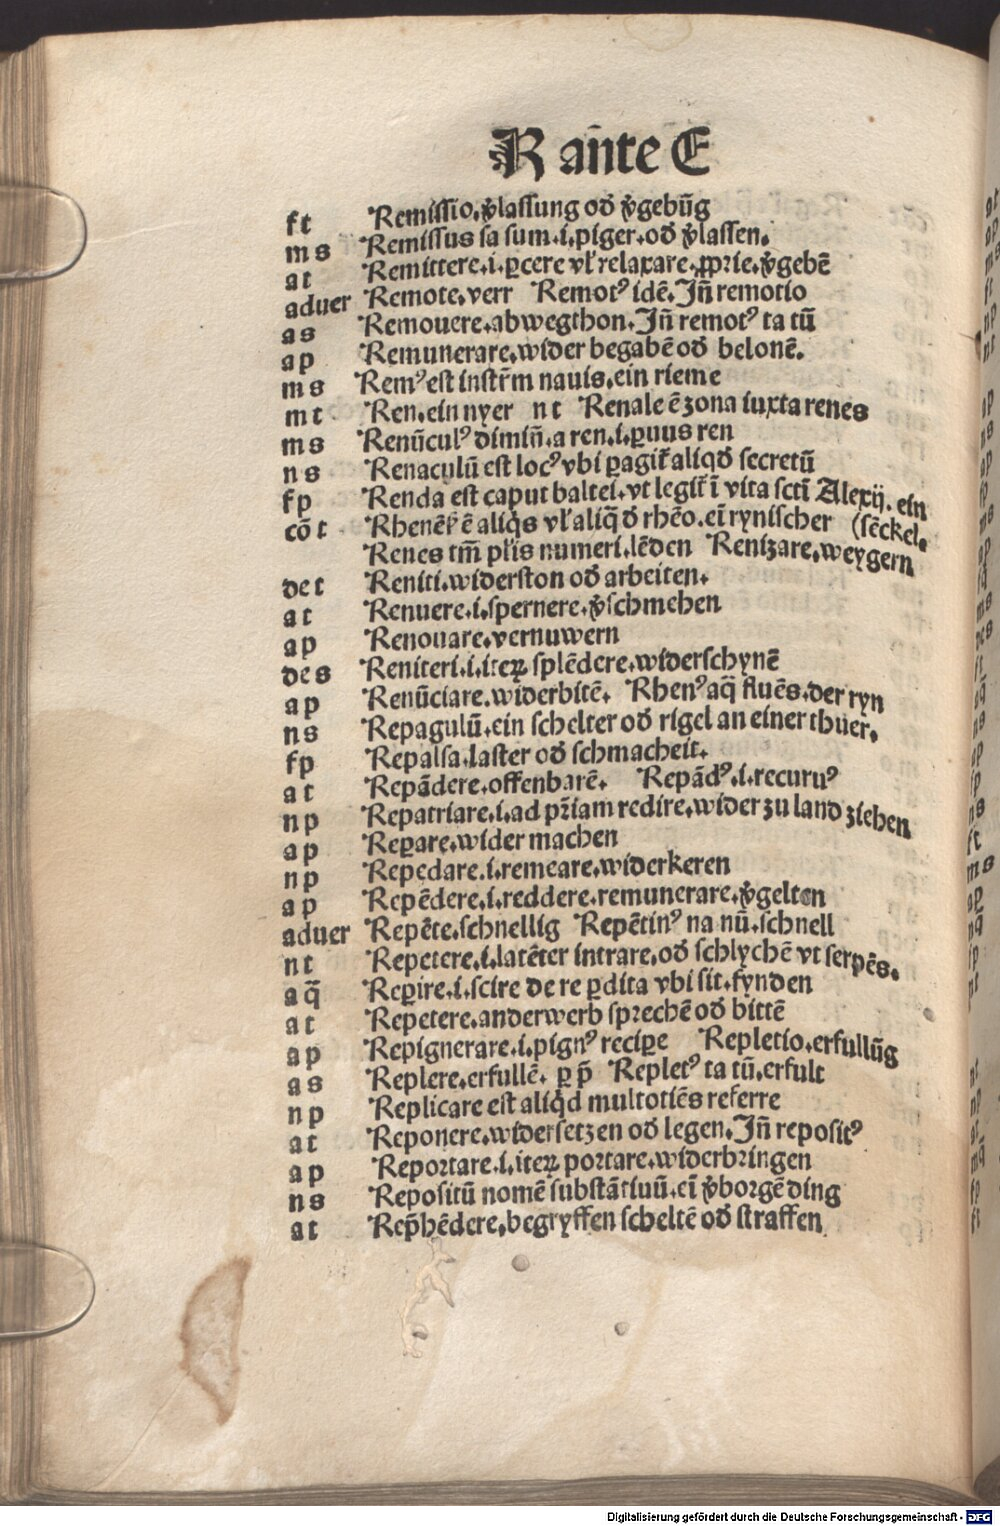 R an̄te E
ft Remissio.v̄lassung od̄ v̄gebūg
ms Remissus sa sum.i.piger.od̄ v̄lassen.
at Remittere.i.ꝑcere vl' relaxare.ꝓprie.v̄gebē
aduer Remote.verr Remotꝰ idē.Jn̄ remotio
as Remouere.abwegthon.Jn̄ remotꝰ ta tū
ap Remunerare.wider begabē od̄ belonē.
ms Remꝰ est instr̄m nauis.ein rieme
mt Ren.ein nyer nt Renale ē zona iuxta renes
ms Renūculꝰ dimin̄.a ren.i.ꝑuus ren
ns Renaculū est locꝰ vbi ꝑagit̄ aliqd̄ secretū
fp Renda est caput baltei.vt legit̄ ī vita sctī Alexij.ein
cō t Rhenēs̄ ē aliq̄s vl' aliq̄ d̄ rhēo.eī rynischer (sēckel.
Renes tm̄ pl'is numeri.lēden Renizare.weygern
de t Reniti.widerston od̄ arbeiten.
at Renuere.i.spernere.v̄schmehen
ap Renouare.vernuwern
des Reniteri.i.iteꝝ splēdere.widerschynē
ap Renūciare.widerbitē. Rhenꝰ aq̄ fluēs.der ryn
ns Repagulū.ein schelter od̄ rigel an einer thuer.
fp Repalsa.laster od̄ schmacheit.
at Repādere.offenbarē. Repādꝰ.i.recuruꝰ
np Repatriare.i.ad pr̄iam redire.wider zu land ziehen
ap Reꝑare.wider machen
np Repedare.i.remeare.widerkeren
ap Repēdere.i.reddere.remunerare.v̄gelten
aduer Repēte.schnellig Repētinꝰ na nū.schnell
nt Repetere.i.latēter intrare.od̄ schlychē vt serpēs.
aq̄ Reꝑire.i.scire de re ꝑdita vbi sit.fynden
at Repetere.anderwerb sprechē od̄ bittē
ap Repignerare.i.pignꝰ reciꝑe Repletio.erfullūg
as Replere.erfullē. ꝑ p̄ Repletꝰ ta tū.erfult
np Replicare est aliqd̄ multotiēs referre
at Reponere.widersetzen od̄ legen.Jn̄ repositꝰ
ap Reportare.i.iteꝝ portare.widerbringen
ns Repositū nomē substātiuū.eī v̄borgē ding
at Rep̄hēdere.begryffen scheltē od̄ straffen
Digitalisierung gefördert durch die Deutsche Forschungsgemeinschaft - DFG